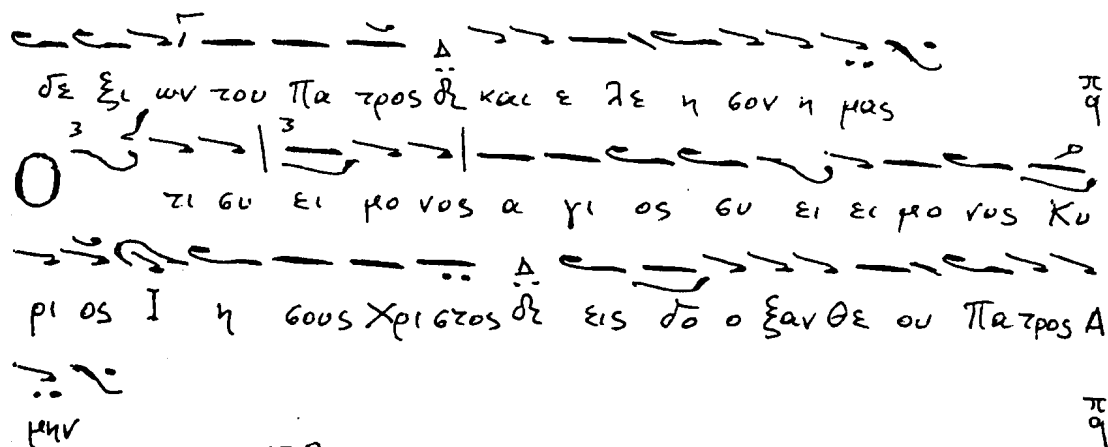 δε ξι ων του Πα τρος και ε λε η σον η μας
Ο τι συ ει μο νος α γι ος συ ει ει μο νος Κυ
ρι ος Ι η σους Χρι στος εις δο ο ξαν Θε ου Πα τρος Α
μην